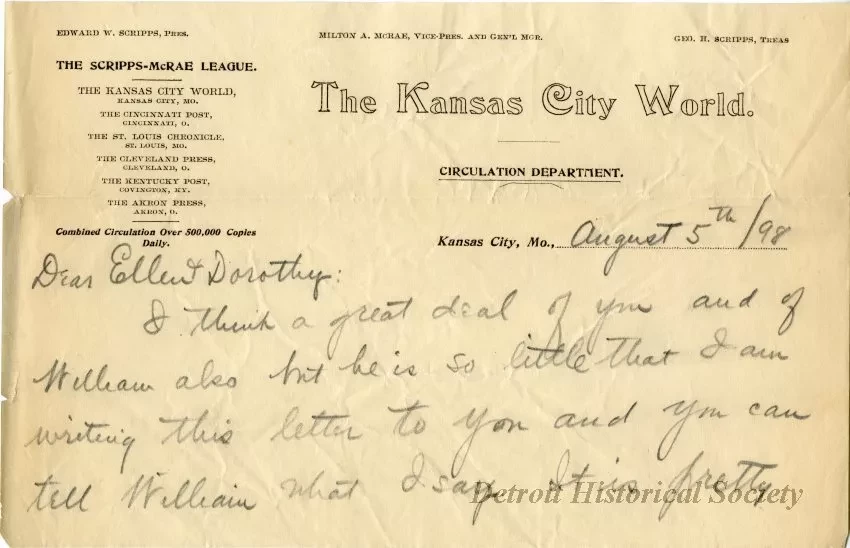 EDWARD W. SCRIPPS, PRES.
MILTON A. McRAE, VICE-PRES. AND GEN'L MGR.
GEO. H. SCRIPPS, TREAS
THE SCRIPPS-McRAE LEAGUE.
THE KANSAS CITY WORLD,
KANSAS CITY, MO.
THE CINCINNATI POST,
CINCINNATI, O.
THE ST. LOUIS CHRONICLE,
ST. LOUIS, MO.
THE CLEVELAND PRESS,
CLEVELAND, O.
THE KENTUCKY POST,
COVINGTON, KY.
THE AKRON PRESS,
AKRON, O.
Combined Circulation Over 500,000 Copies
Daily.
The Kansas City World.
CIRCULATION DEPARTMENT.
Kansas City, Mo., August 5th/98
Dear Ellen & Dorothy:
I think a great deal of you and of
William also but he is so little that I am
writing this letter to you and you can
tell William what I say. It is pretty
Detroit Historical Society